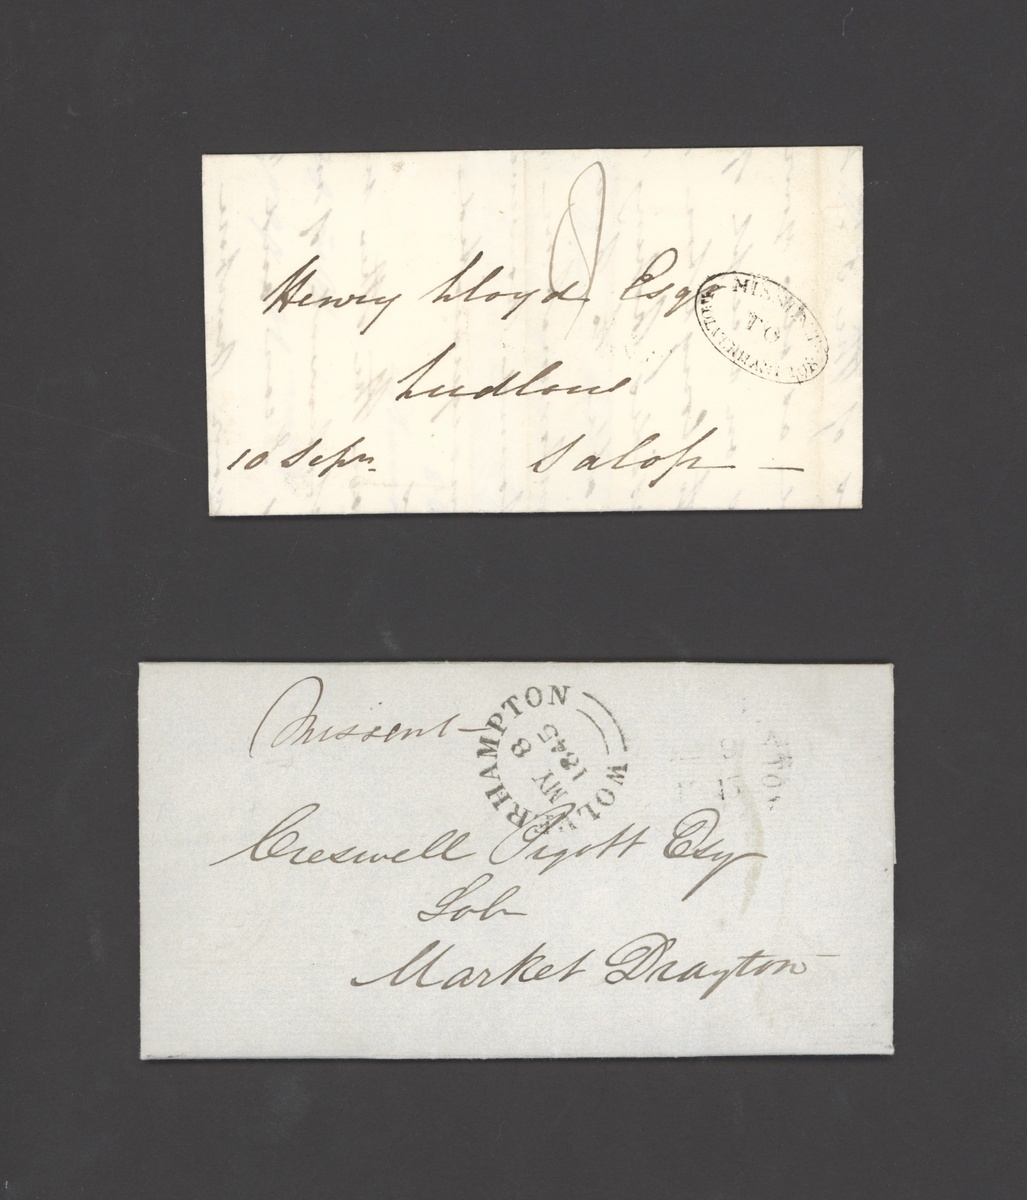 Henry Lloyd Esqr
MISSENT
TO
WOLVERHAMPTON
Ludlow
10 Septr.
Salop —
Missent
WOLVERHAMPTON
MY 8
1845
Creswell Pigott Esq
Solr
Market Drayton